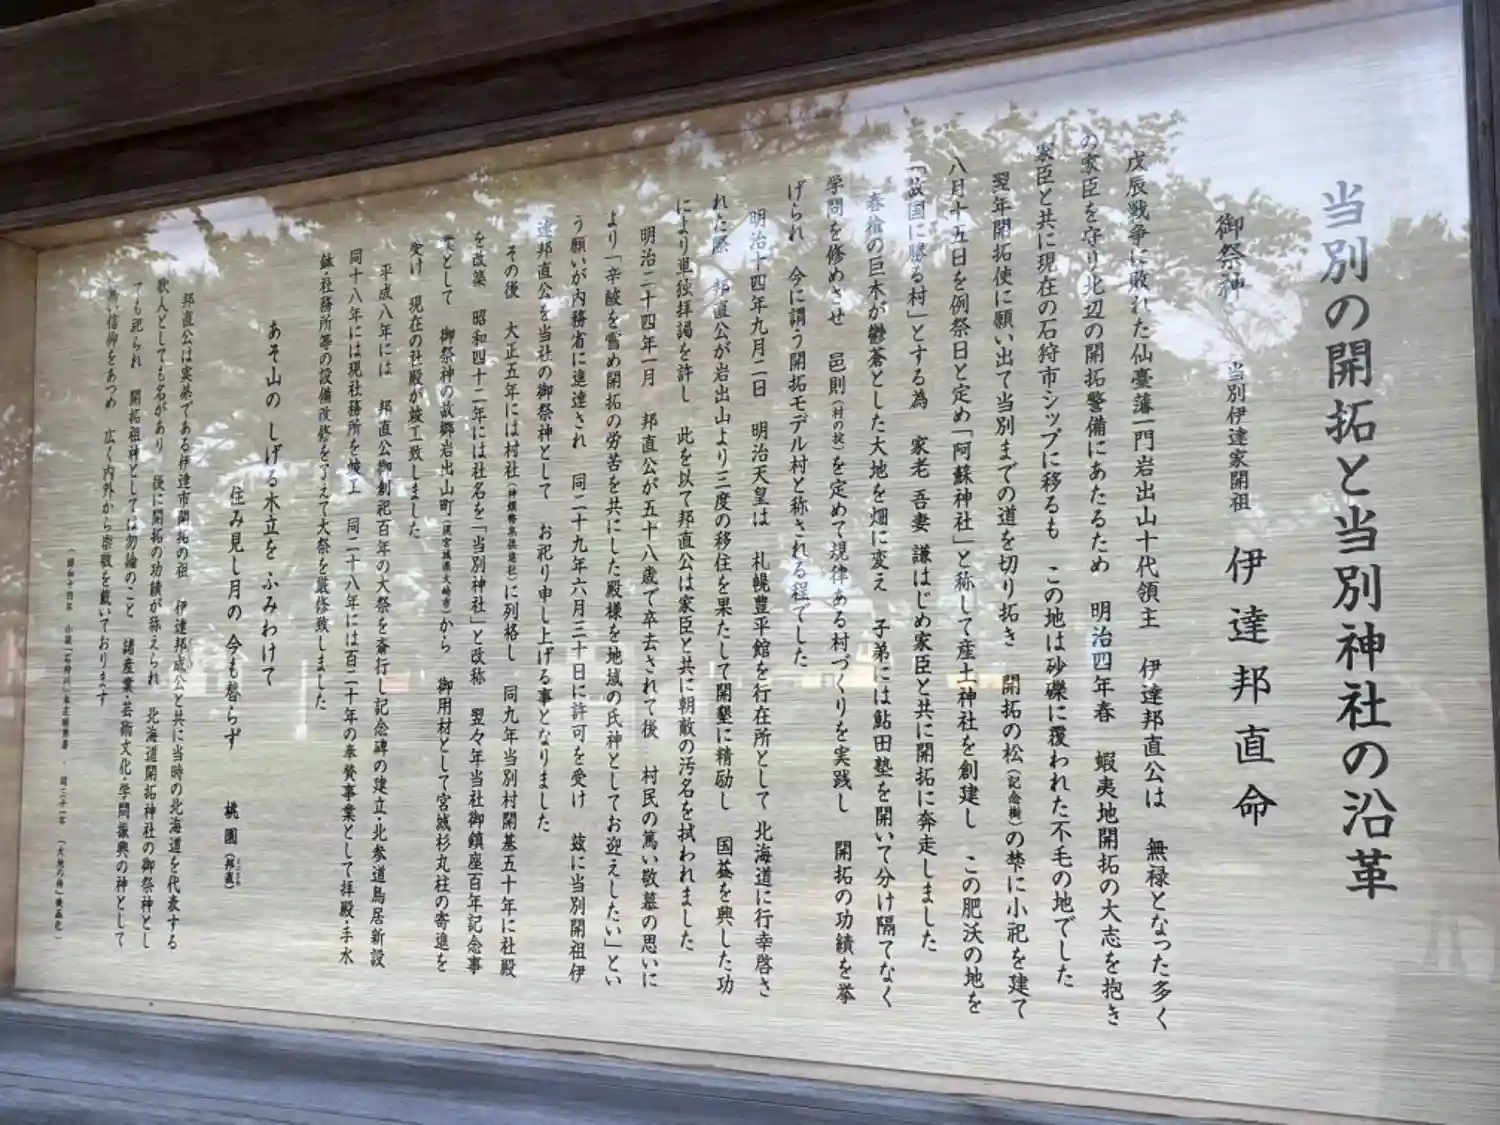 当別の開拓と当別神社の沿革
御祭神 当別伊達家開祖 伊達邦直命
戊辰戦争に敗れた仙臺藩一門岩出山十代領主 伊達邦直公は 無禄となった多く
の家臣を守り北辺の開拓警備にあたるため 明治四年春 蝦夷地開拓の大志を抱き
家臣と共に現在の石狩市シップに移るも この地は砂礫に覆われた不毛の地でした
翌年開拓使に願い出て当別までの道を切り拓き 開拓の松(記念樹)の梺に小祀を建て
八月十五日を例祭日と定め「阿蘇神社」と称して産土神社を創建し この肥沃の地を
「故国に勝る村」とする為 家老 吾妻 謙はじめ家臣と共に開拓に奔走しました
春楡の巨木が鬱蒼とした大地を畑に変え 子弟には鮎田塾を開いて分け隔てなく
学問を修めさせ 邑則(村の掟)を定めて規律ある村づくりを実践し 開拓の功績を挙
げられ 今に謂う開拓モデル村と称される程でした
明治十四年九月二日 明治天皇は 札幌豊平館を行在所として 北海道に行幸啓さ
れた際 邦直公が岩出山より三度の移住を果たして開墾に精励し 国益を興した功
により単独拝謁を許し 此を以て邦直公は家臣と共に朝敵の汚名を拭われました
明治二十四年一月 邦直公が五十八歳で卒去されて後 村民の篤い敬慕の思いに
より「辛酸を嘗め開拓の労苦を共にした殿様を地域の氏神としてお迎えしたい」とい
う願いが内務省に進達され 同二十九年六月三十日に許可を受け 茲に当別開祖伊
達邦直公を当社の御祭神として お祀り申し上げる事となりました
その後 大正五年には村社(神饌幣帛供進社)に列格し 同九年当別村開基五十年に社殿
を改築 昭和四十二年には社名を「当別神社」と改称 翌々年当社御鎮座百年記念事
業として 御祭神の故郷岩出山町(現宮城県大崎市)から 御用材として宮城杉丸柱の寄進を
受け 現在の社殿が竣工致しました
平成八年には 邦直公御創祀百年の大祭を斎行し記念碑の建立・北参道鳥居新設
同十八年には現社務所を竣工 同二十八年には百二十年の奉賛事業として拝殿・手水
鉢・社務所等の設備改修を了えて大祭を厳修致しました
あそ山の しげる木立を ふみわけて
住み見し月の 今も替らず 桃園(邦直)
邦直公は実弟である伊達市開拓の祖 伊達邦成公と共に当時の北海道を代表する
歌人としても名があり 後に開拓の功績が称えられ 北海道開拓神社の御祭神とし
ても祀られ 開拓祖神としては勿論のこと 諸産業・芸術文化・学問振興の神として
篤い信仰をあつめ 広く内外から崇敬を戴いております
(昭和十四年 小説「石狩川」本庄陸男著